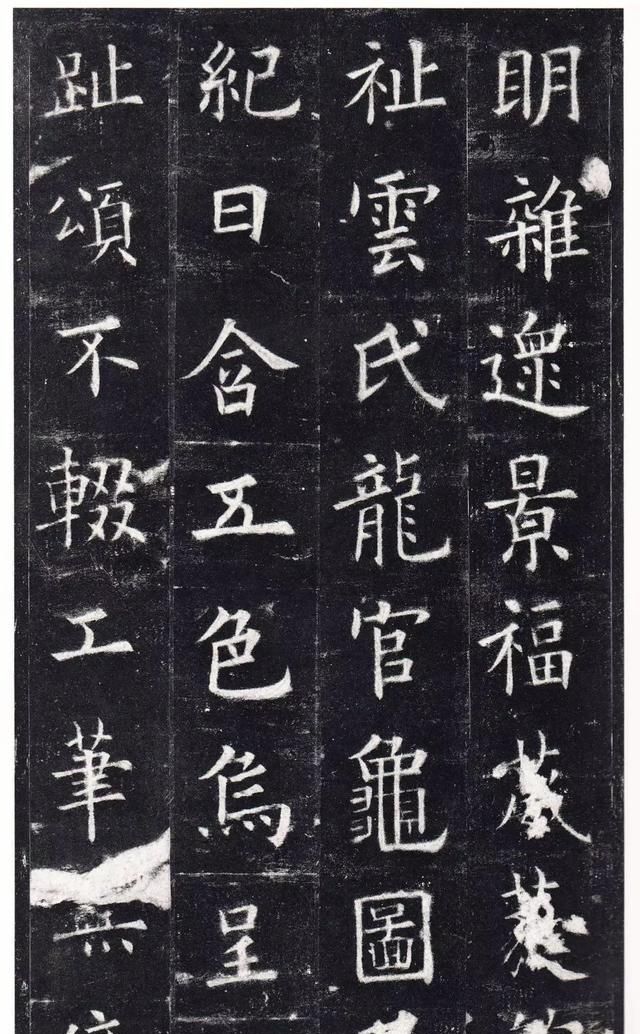 明雜遝景福葳蕤
祉雲氏龍官龜圖
紀日含五色烏呈
趾頌不輟工筆無